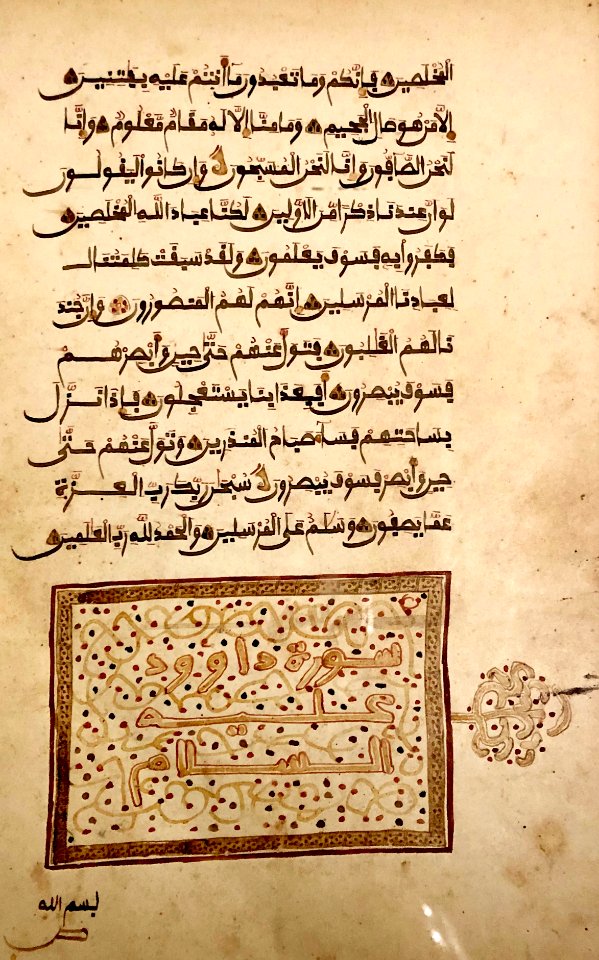 المخلصين فإنكم وما تعبدون ما أنتم عليه بفتنين
إلا من هو صال الجحيم وما منا إلا له مقام معلوم وإنا
لنحن الصافون وإنا لنحن المسبحون وإن كانوا ليقولون
لو أن عندنا ذكرا من الأولين لكنا عباد الله المخلصين
فكفروا به فسوف يعلمون ولقد سبقت كلمتنا
لعبادنا المرسلين إنهم لهم المنصورون وإن جند
نا لهم الغلبون فتول عنهم حتى حين وأبصرهم
فسوف يبصرون أفبعذابنا يستعجلون فإذا نزل
بساحتهم فساء صباح المنذرين وتول عنهم حتى
حين وأبصر فسوف يبصرون سبحن ربك رب العزة
عما يصفون وسلم على المرسلين والحمد لله رب العلمين
سورة داوود
عليه
السلام
بسم الله